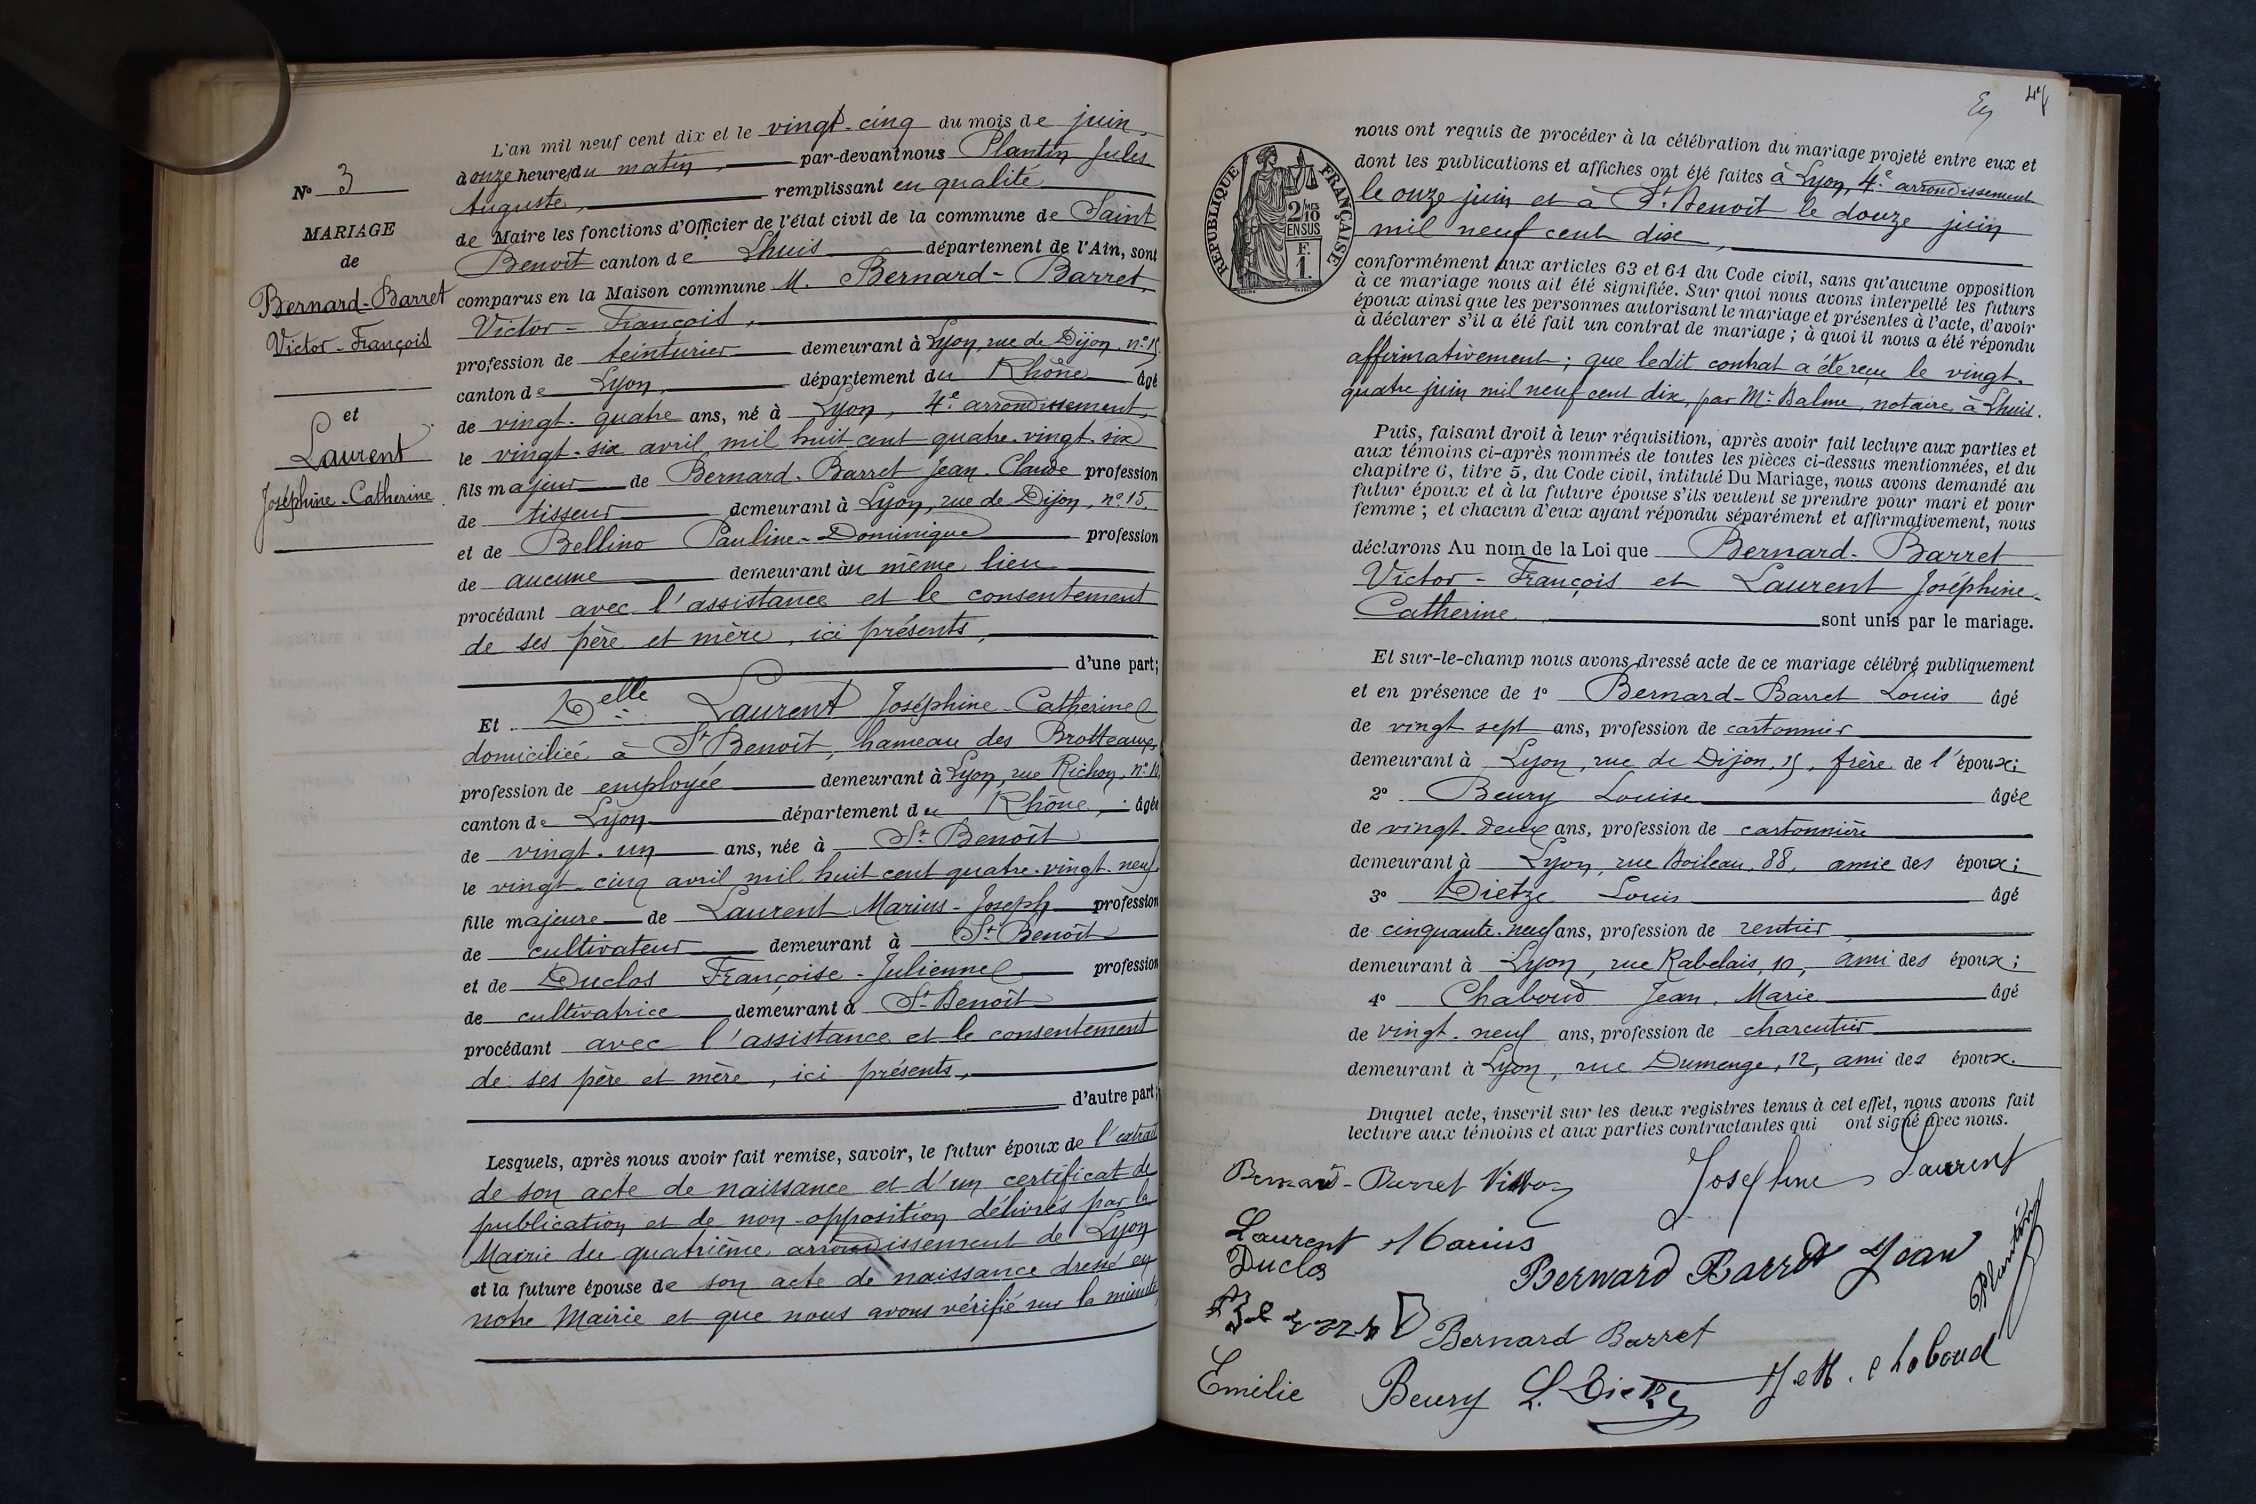 N° 3
MARIAGE
de
Bernard-Barret
Victor-François
et
Laurent
Joséphine-Catherine
L'an mil neuf cent dix et le vingt-cinq du mois de juin,
à onze heures du matin, par-devant nous Plantin Jules
Auguste, remplissant en qualité
de Maire les fonctions d'Officier de l'état civil de la commune de Saint
Benoît canton de Lhuis département de l'Ain, sont
comparus en la Maison commune M. Bernard-Barret,
Victor-François,
profession de teinturier demeurant à Lyon, rue de Dijon, n° 15
canton de Lyon, département du Rhône âgé
de vingt-quatre ans, né à Lyon, 4e arrondissement,
le vingt-six avril mil huit cent quatre-vingt-six
fils majeur de Bernard-Barret Jean-Claude profession
de tisseur demeurant à Lyon, rue de Dijon, n° 15,
et de Bellino Pauline-Dominique profession
de aucune demeurant au même lieu
procédant avec l'assistance et le consentement
de ses père et mère, ici présents,
d'une part;
Et Delle Laurent Joséphine-Catherine
domiciliée à St Benoît, hameau des Brotteaux,
profession de employée demeurant à Lyon, rue Richan, n° 10,
canton de Lyon département du Rhône, âgée
de vingt-un ans, née à St Benoît
le vingt-cinq avril mil huit cent quatre-vingt-neuf,
fille majeure de Laurent Marius-Joseph profession
de cultivateur demeurant à St Benoît
et de Duclos Françoise-Julienne profession
de cultivatrice demeurant à St Benoît
procédant avec l'assistance et le consentement
de ses père et mère, ici présents,
d'autre part;
Lesquels, après nous avoir fait remise, savoir, le futur époux de l'extrait
de son acte de naissance et d'un certificat de
publication et de non-opposition délivrés par la
Mairie du quatrième arrondissement de Lyon
et la future épouse de son acte de naissance dressé en
notre Mairie et que nous avons vérifié sur la minute,
RÉPUBLIQUE FRANÇAISE
2/10
EN SUS
F.
1.
nous ont requis de procéder à la célébration du mariage projeté entre eux et
dont les publications et affiches ont été faites à Lyon, 4e arrondissement
le onze juin et à St Benoît le douze juin
mil neuf cent dix,
conformément aux articles 63 et 64 du Code civil, sans qu'aucune opposition
à ce mariage nous ait été signifiée. Sur quoi nous avons interpellé les futurs
époux ainsi que les personnes autorisant le mariage et présentes à l'acte, d'avoir
à déclarer s'il a été fait un contrat de mariage; à quoi il nous a été répondu
affirmativement; que ledit contrat a été reçu le vingt-
quatre juin mil neuf cent dix, par Me Balme, notaire à Lhuis.
Puis, faisant droit à leur réquisition, après avoir fait lecture aux parties et
aux témoins ci-après nommés de toutes les pièces ci-dessus mentionnées, et du
chapitre 6, titre 5, du Code civil, intitulé Du Mariage, nous avons demandé au
futur époux et à la future épouse s'ils veulent se prendre pour mari et pour
femme; et chacun d'eux ayant répondu séparément et affirmativement, nous
déclarons Au nom de la Loi que Bernard-Barret
Victor-François et Laurent Joséphine-
Catherine sont unis par le mariage.
Et sur-le-champ nous avons dressé acte de ce mariage célébré publiquement
et en présence de 1° Bernard-Barret Louis âgé
de vingt sept ans, profession de cartonnier
demeurant à Lyon, rue de Dijon, 15, frère de l'époux;
2° Beury Louise âgée
de vingt-deux ans, profession de cartonnière
demeurant à Lyon, rue Boileau, 88, amie des époux;
3° Dietze Louis âgé
de cinquante-neuf ans, profession de rentier
demeurant à Lyon, rue Rabelais, 10, ami des époux;
4° Chaboud Jean-Marie âgé
de vingt-neuf ans, profession de charcutier
demeurant à Lyon, rue Dumenge, 12, ami des époux.
Duquel acte, inscrit sur les deux registres tenus à cet effet, nous avons fait
lecture aux témoins et aux parties contractantes qui ont signé avec nous.
Bernard-Barret Victor
Josephine Laurent
Laurent Marius
Duclos
Bernard Barret Jean
Plantin
Bernard Barret
Emilie Beury L. Dietze J M. Chaboud